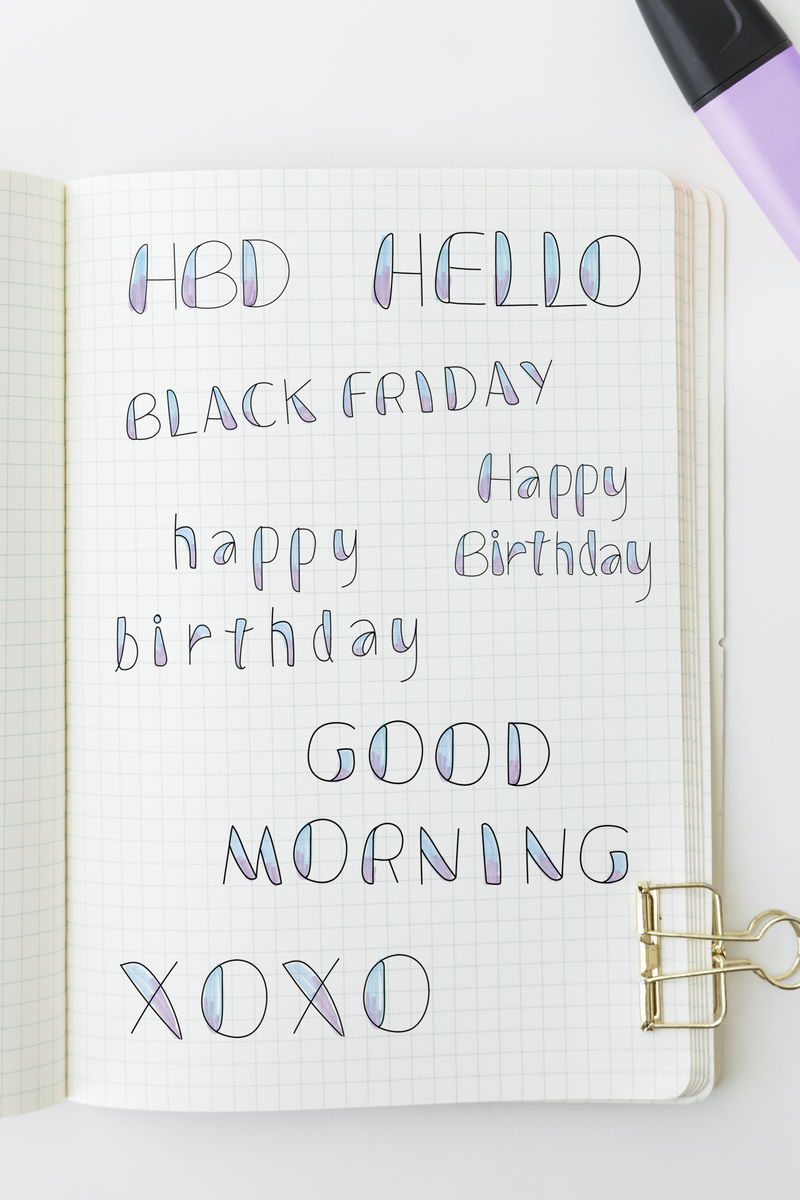 HBD HELLO
BLACK FRIDAY
Happy
Birthday
happy
birthday
GOOD
MORNING
XOXO